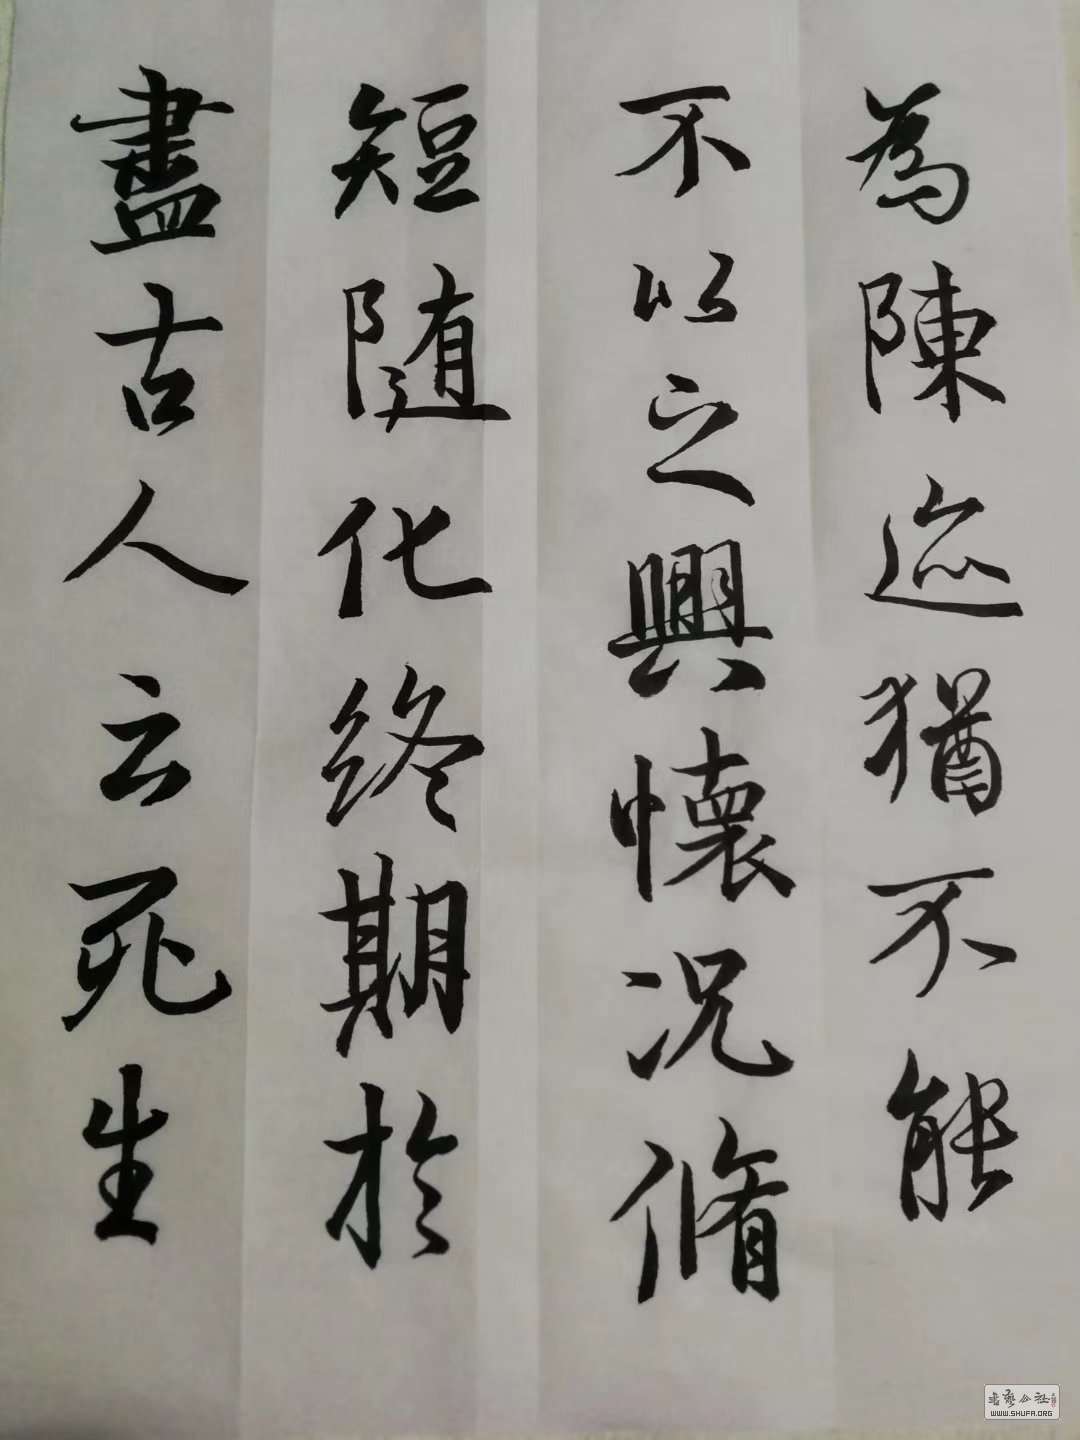 為陳迹猶不能
不以之興懷况脩
短随化終期於
盡古人云死生
书艺公社
WWW.SHUFA.ORG